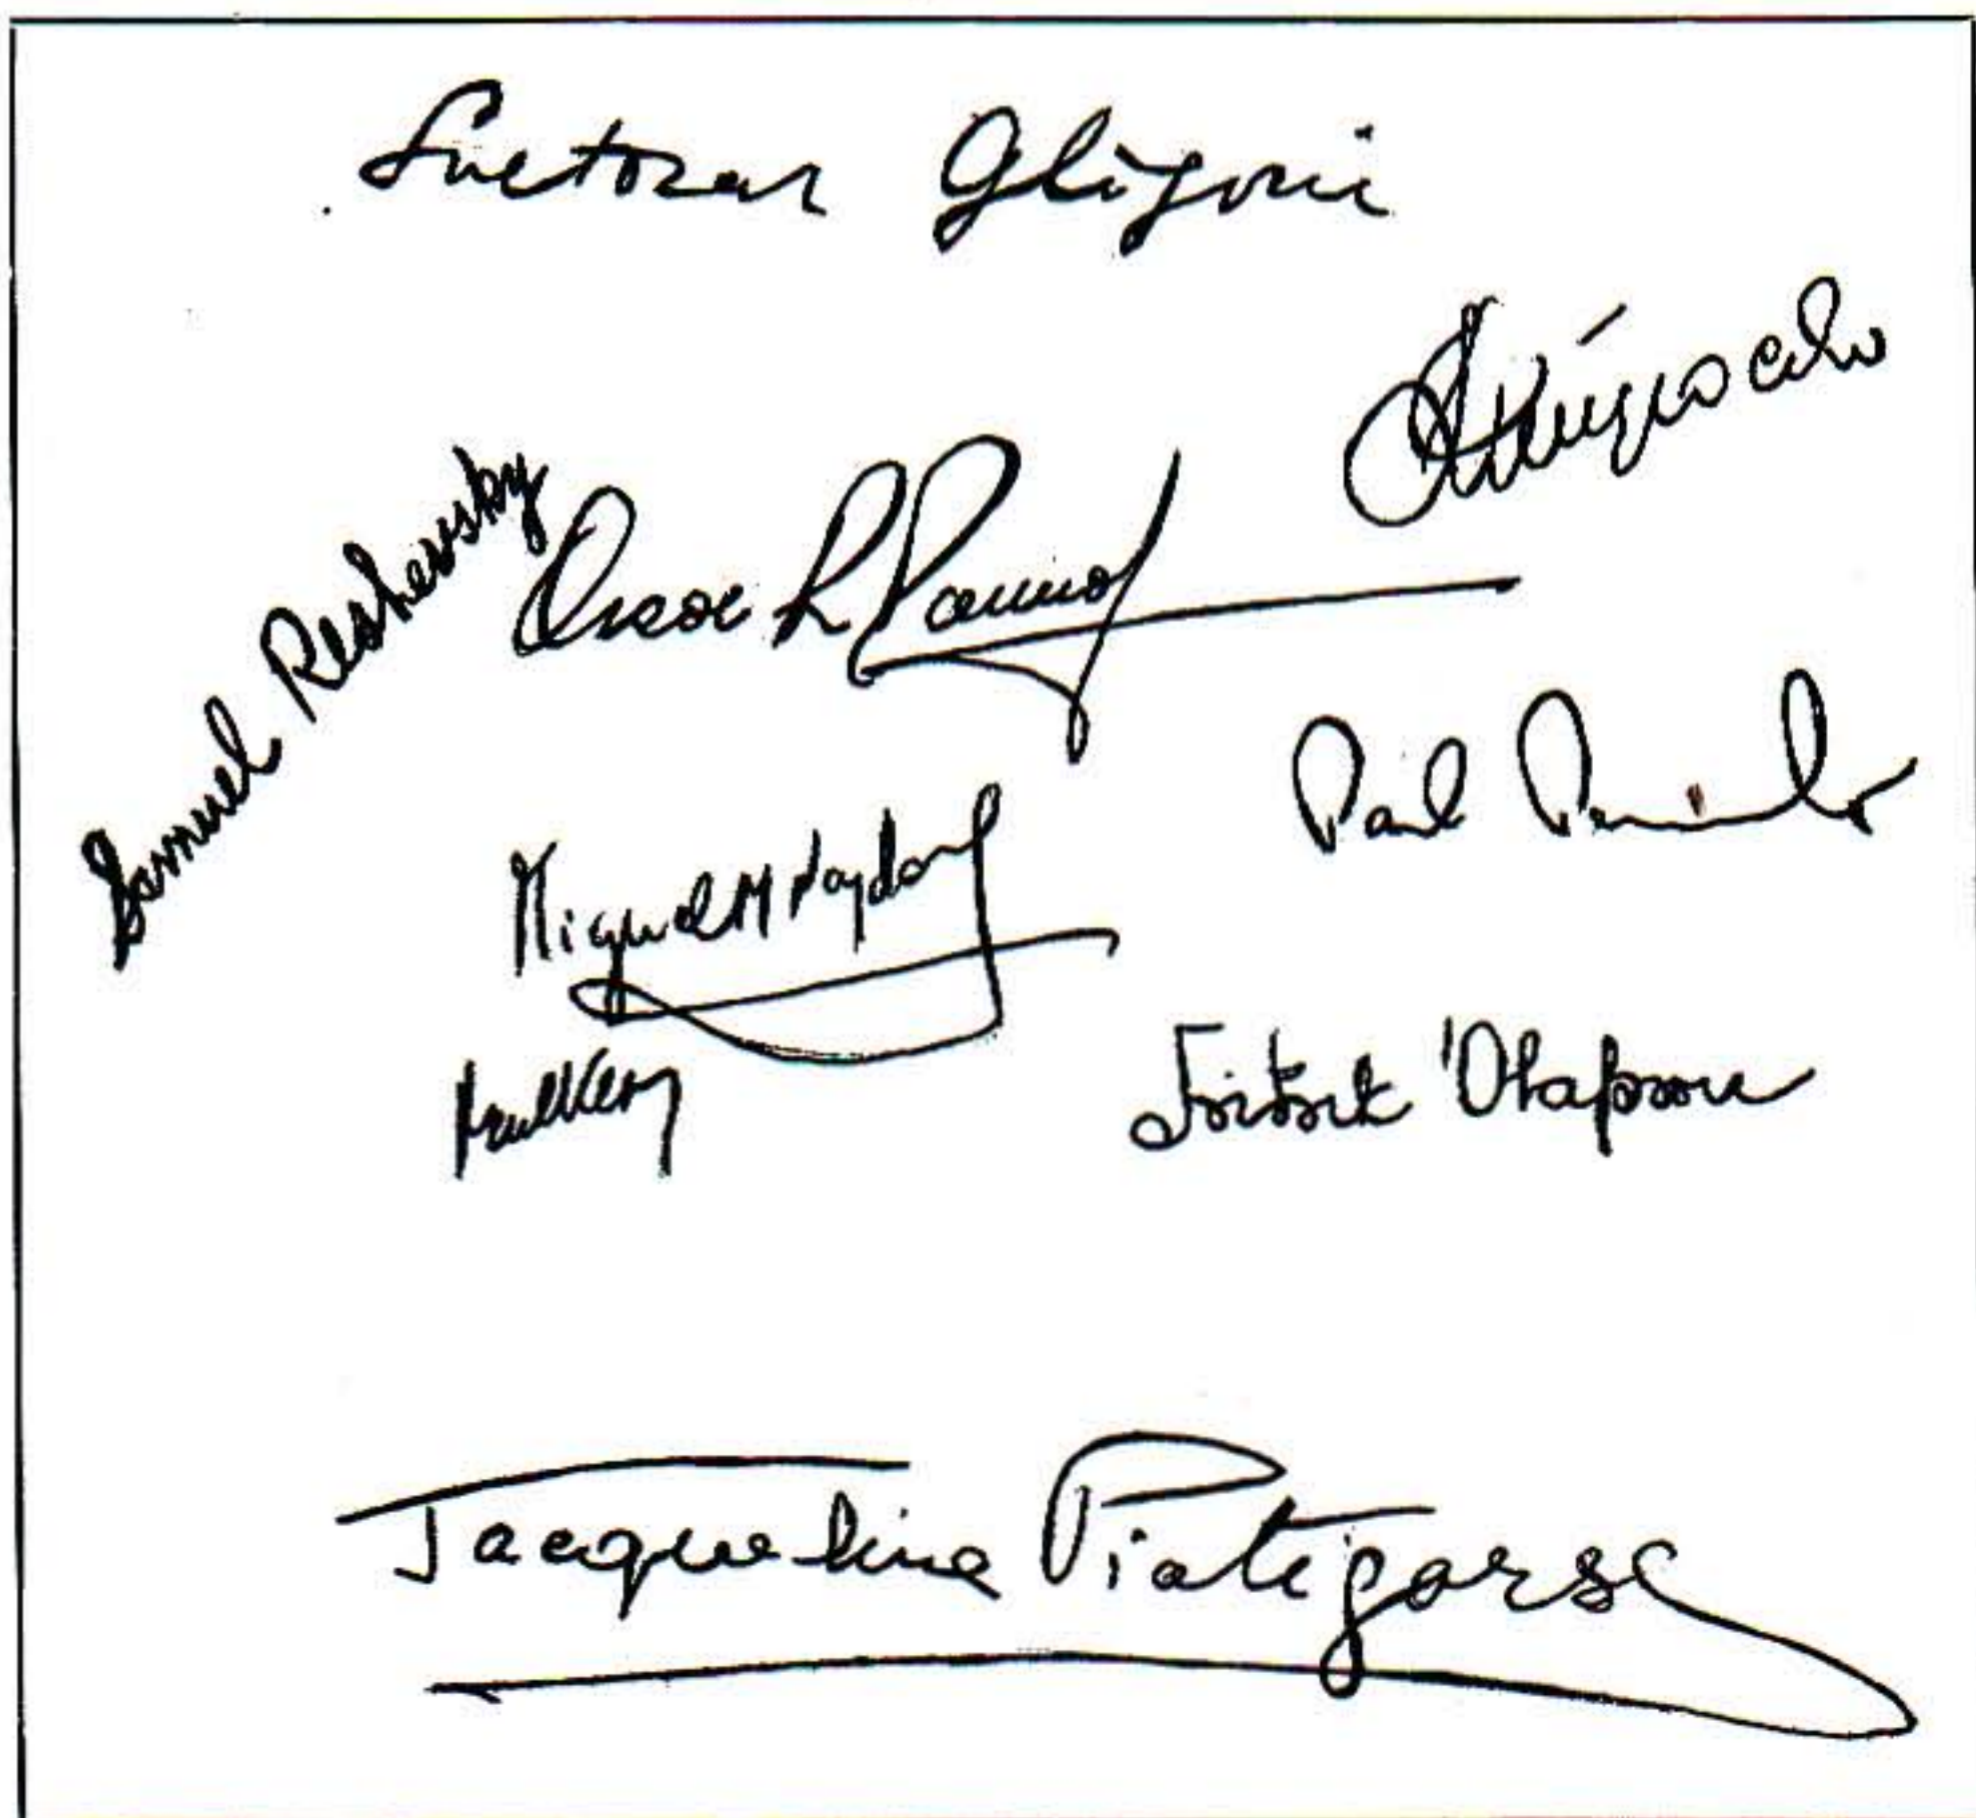 Svetozar Gligoric
Samuel Reshevsky
Oscar R Panno
Miguel M Najdorf
Paul Keres
Fridrik Olafsson
Jacqueline Piatigorsky